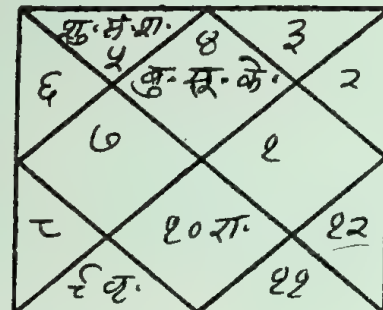 शु. मं. श. ४ ३
५
६ बु. सू. के. २
७ १
८ १० रा. १२
९ वृ. ११